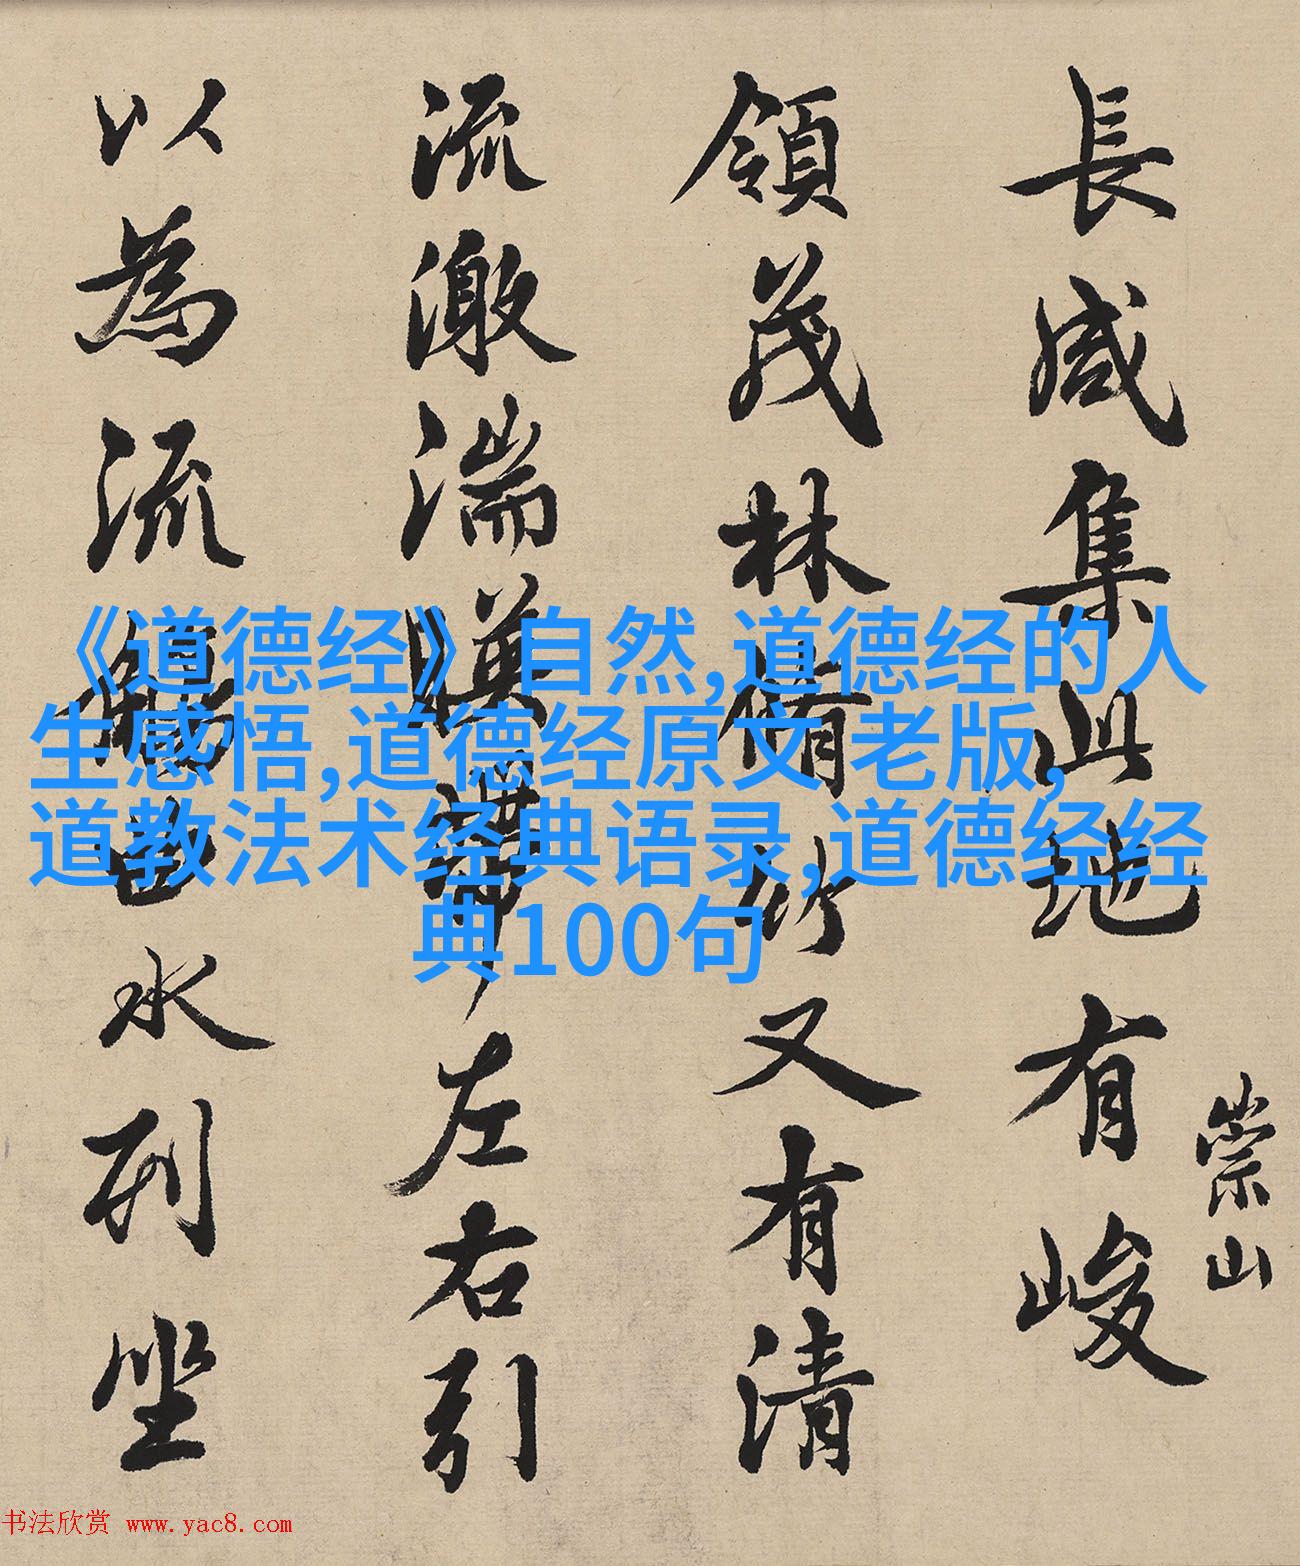 長咸集此地有峻
崇山
領茂林脩竹又有清
流激湍暎帶左右引
以為流觴曲水列坐
《道德经》自然,道德经的人
生感悟,道德经原文 老版,
道教法术经典语录,道德经经
典100句
书法欣赏 www.yac8.com